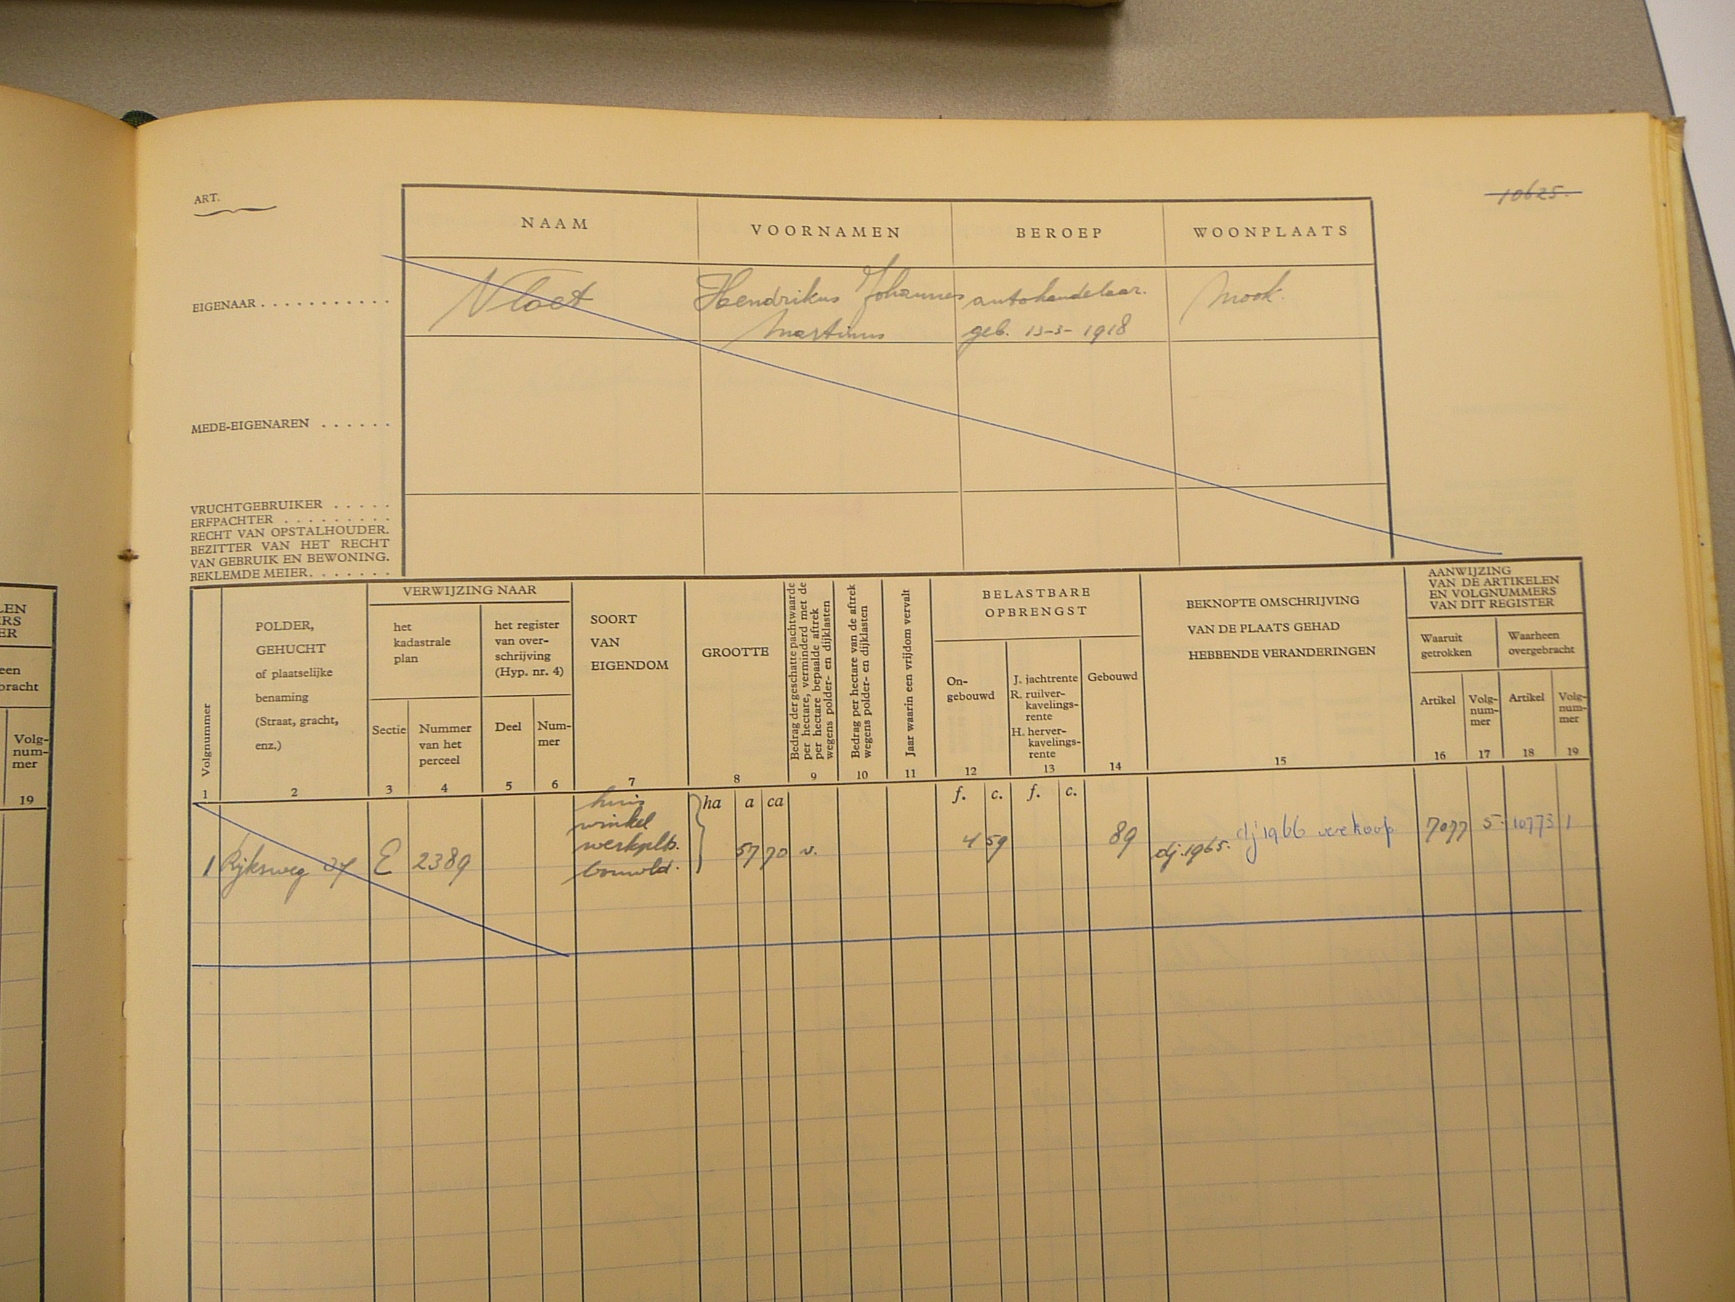 ART.
10625.
NAAM
VOORNAMEN
BEROEP
WOONPLAATS
EIGENAAR
Vloet
Hendrikus Johannes
Martinus
autohandelaar.
geb. 13-3-1918
Mook.
MEDE-EIGENAREN
VRUCHTGEBRUIKER
ERFPACHTER
RECHT VAN OPSTALHOUDER.
BEZITTER VAN HET RECHT
VAN GEBRUIK EN BEWONING.
BEKLEMDE MEIER.
Volgnummer
1
POLDER,
GEHUCHT
of plaatselijke
benaming
(Straat, gracht,
enz.)
2
VERWIJZING NAAR
het
kadastrale
plan
Sectie
3
Nummer
van het
perceel
4
het register
van over-
schrijving
(Hyp. nr. 4)
Deel
5
Num-
mer
6
SOORT
VAN
EIGENDOM
7
GROOTTE
8
Bedrag der geschatte pachtwaarde
per hectare, verminderd met de
per hectare bepaalde aftrek
wegens polder- en dijklasten
9
Bedrag per hectare van de aftrek
wegens polder- en dijklasten
10
Jaar waarin een vrijdom vervalt
11
BELASTBARE
OPBRENGST
On-
gebouwd
12
J. jachtrente
R. ruilver-
kavelings-
rente
H. herver-
kavelings-
rente
13
Gebouwd
14
BEKNOPTE OMSCHRIJVING
VAN DE PLAATS GEHAD
HEBBENDE VERANDERINGEN
15
AANWIJZING
VAN DE ARTIKELEN
EN VOLGNUMMERS
VAN DIT REGISTER
Waaruit
getrokken
Waarheen
overgebracht
Artikel
16
Volg-
num-
mer
17
Artikel
18
Volg-
num-
mer
19
ha a ca
f. c. f. c.
1 Rijksweg 37 E 2389
huis
winkel
werkplts.
bouwld.
57 70 v. 4 59 89
dj. 1965. dj 1966 verkoop 7077 5. 10773 1
LEN
ERS
ER
een
bracht
Volg-
num-
mer
19